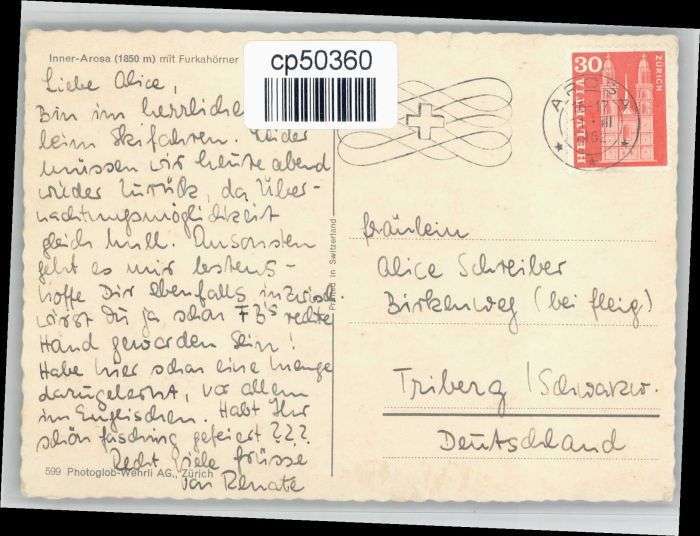 Inner-Arosa (1850 m) mit Furkahörner
cp50360
Liebe Alice,
Bin im herrlichen
beim Skifahren. Leider
müssen wir heute abend
wieder zurück, da Über-
nachtungsmöglichkeit
gleich Null. Ansonsten
geht es mir bestens -
hoffe Dir ebenfalls, inzwisch.
wirst Du ja schon FB's rechte
Hand geworden sein!
Habe hier schon eine Menge
dazugelernt, vor allem
im Englischen. Habt Ihr
schön Fasching gefeiert ???
Recht viele Grüsse
von Renate
599 Photoglob-Wehrli AG., Zürich
Printed in Switzerland
30
HELVETIA
ZÜRICH
AROSA
Fräulein
Alice Schreiber
Birkenweg (bei Fleig)
Triberg / Schwarzw.
Deutschland